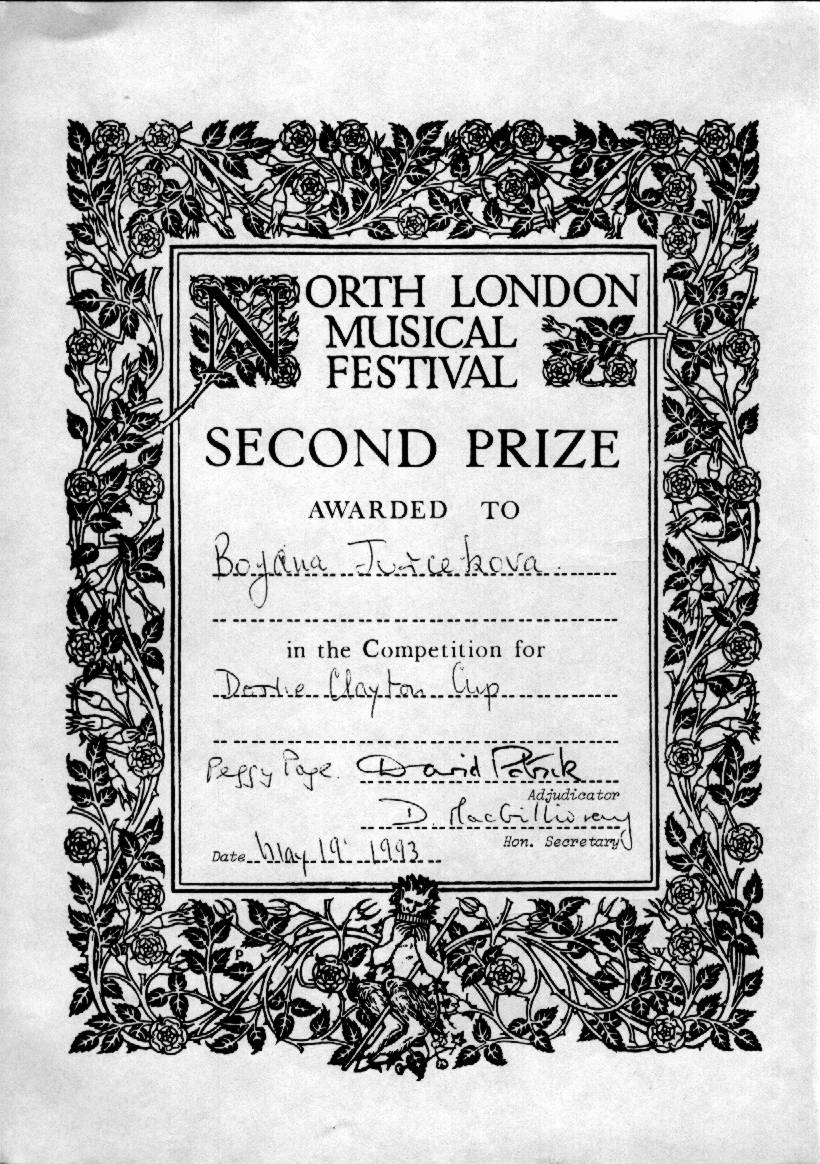 NORTH LONDON
MUSICAL
FESTIVAL
SECOND PRIZE
AWARDED TO
Bojana
in the Competition for
Clayton Cup
Peggy Page. David Patrick
Adjudicator
D. MacGillivray
Hon. Secretary
Date May 19 1993
P W